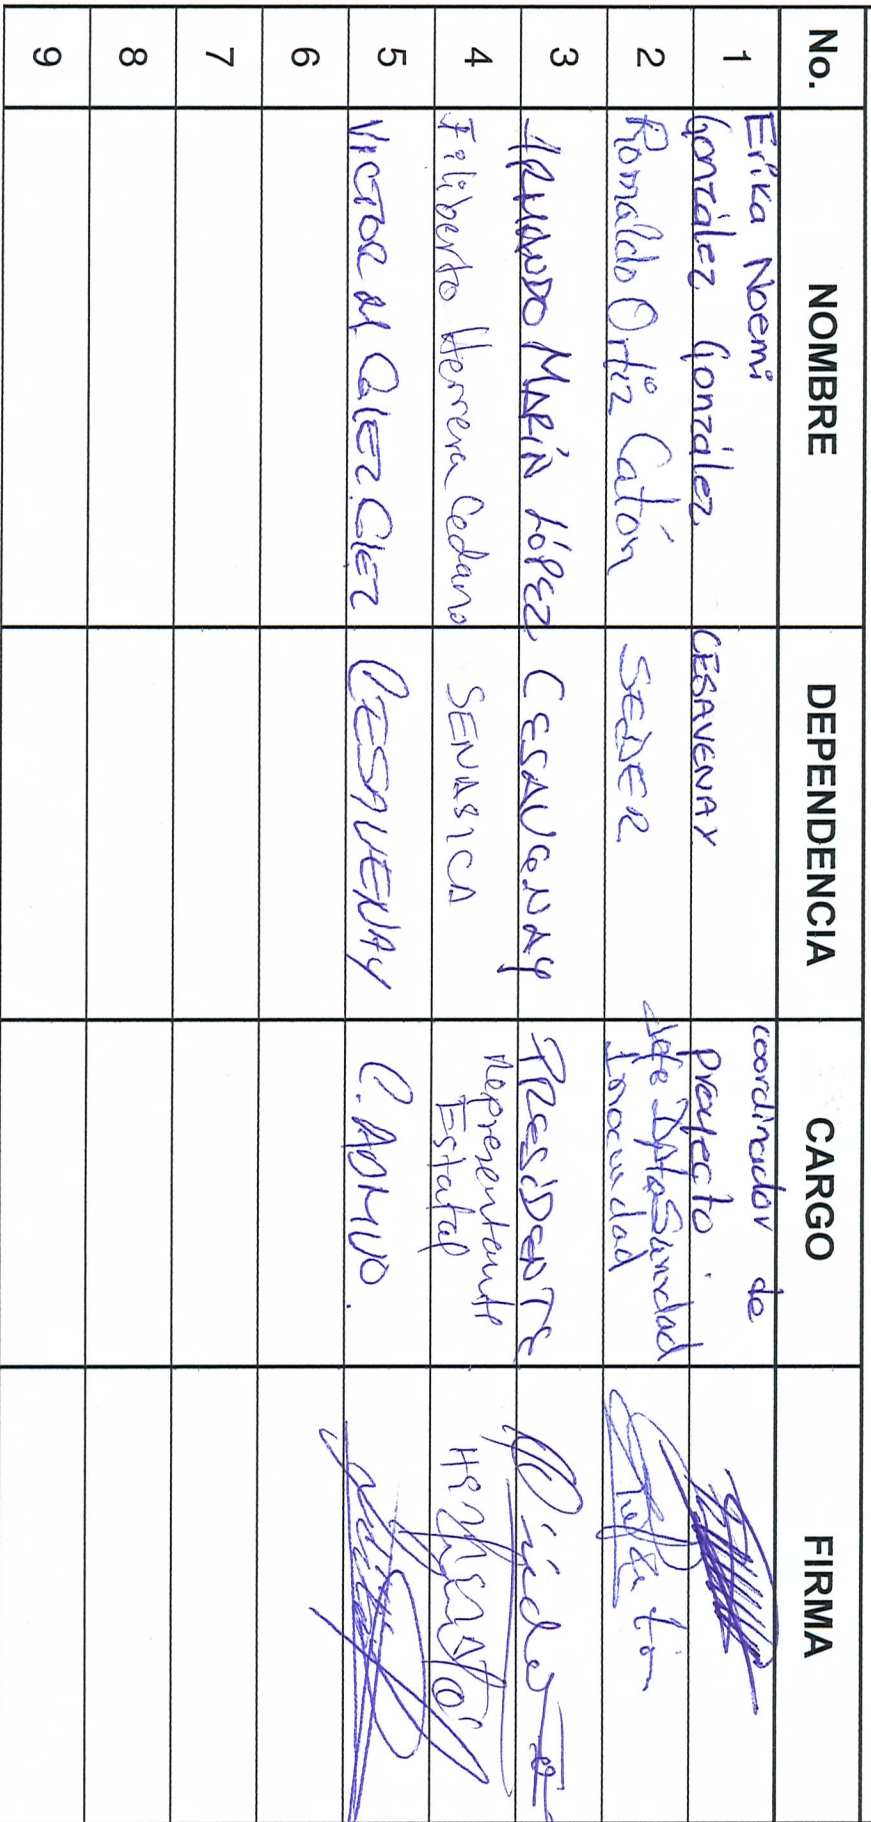 No. NOMBRE DEPENDENCIA CARGO FIRMA
1 Erika Noemi González González CESAVENAY coordinador de proyecto.
2 Romaldo Ortiz Catón SEDER Jefe Dpto Sanidad Inocuidad
3 ARMANDO MARÍN LÓPEZ CESAVENAY PRESIDENTE
4 Filiberto Herrera Cedano SENASICA Representante Estatal
5 VICTOR M GLEZ GLEZ CESAVENAY C. ADMVO.
6
7
8
9